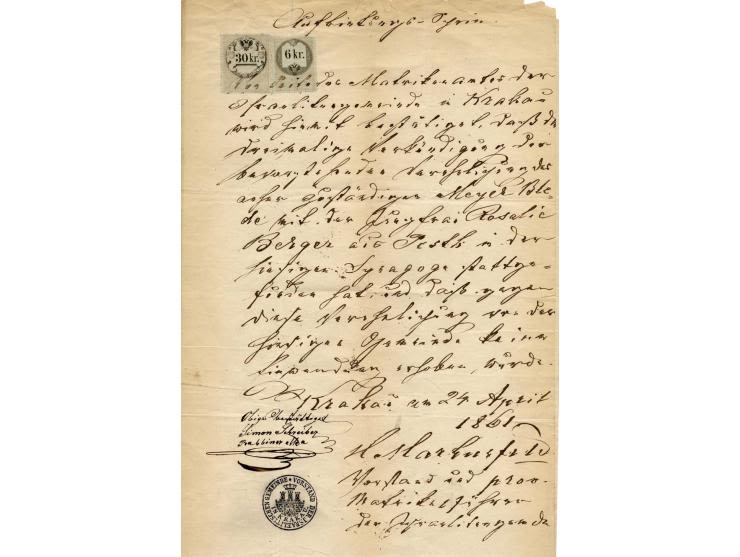 Aufbietungs-Schein
30 kr.
6 kr.
Von Seite des Matrikenamtes der
Israelitengemeinde in Krakau
wird hiemit bestätiget, daß die
dreimalige Verkündigung der
bevorstehenden Verehelichung des
anher zuständigen Meyer Ble-
de mit der Jungfrau Rosalie
Berger aus Pesth in der
hiesigen Synagoge stattge-
funden hat, und daß gegen
diese Verehelichung von der
hiesigen Gemeinde keine
Einwendung erhoben wurde.
Krakau am 24 April
1861
Obiges bestättiget
Simon Schreiber
Rabbiner
H. Markusfeld
Vorstand und prov.
Matrikelführer
der Israelitengemeinde
ISRAELITENGEMEINDE * VORSTAND DER
IN KRAKAU